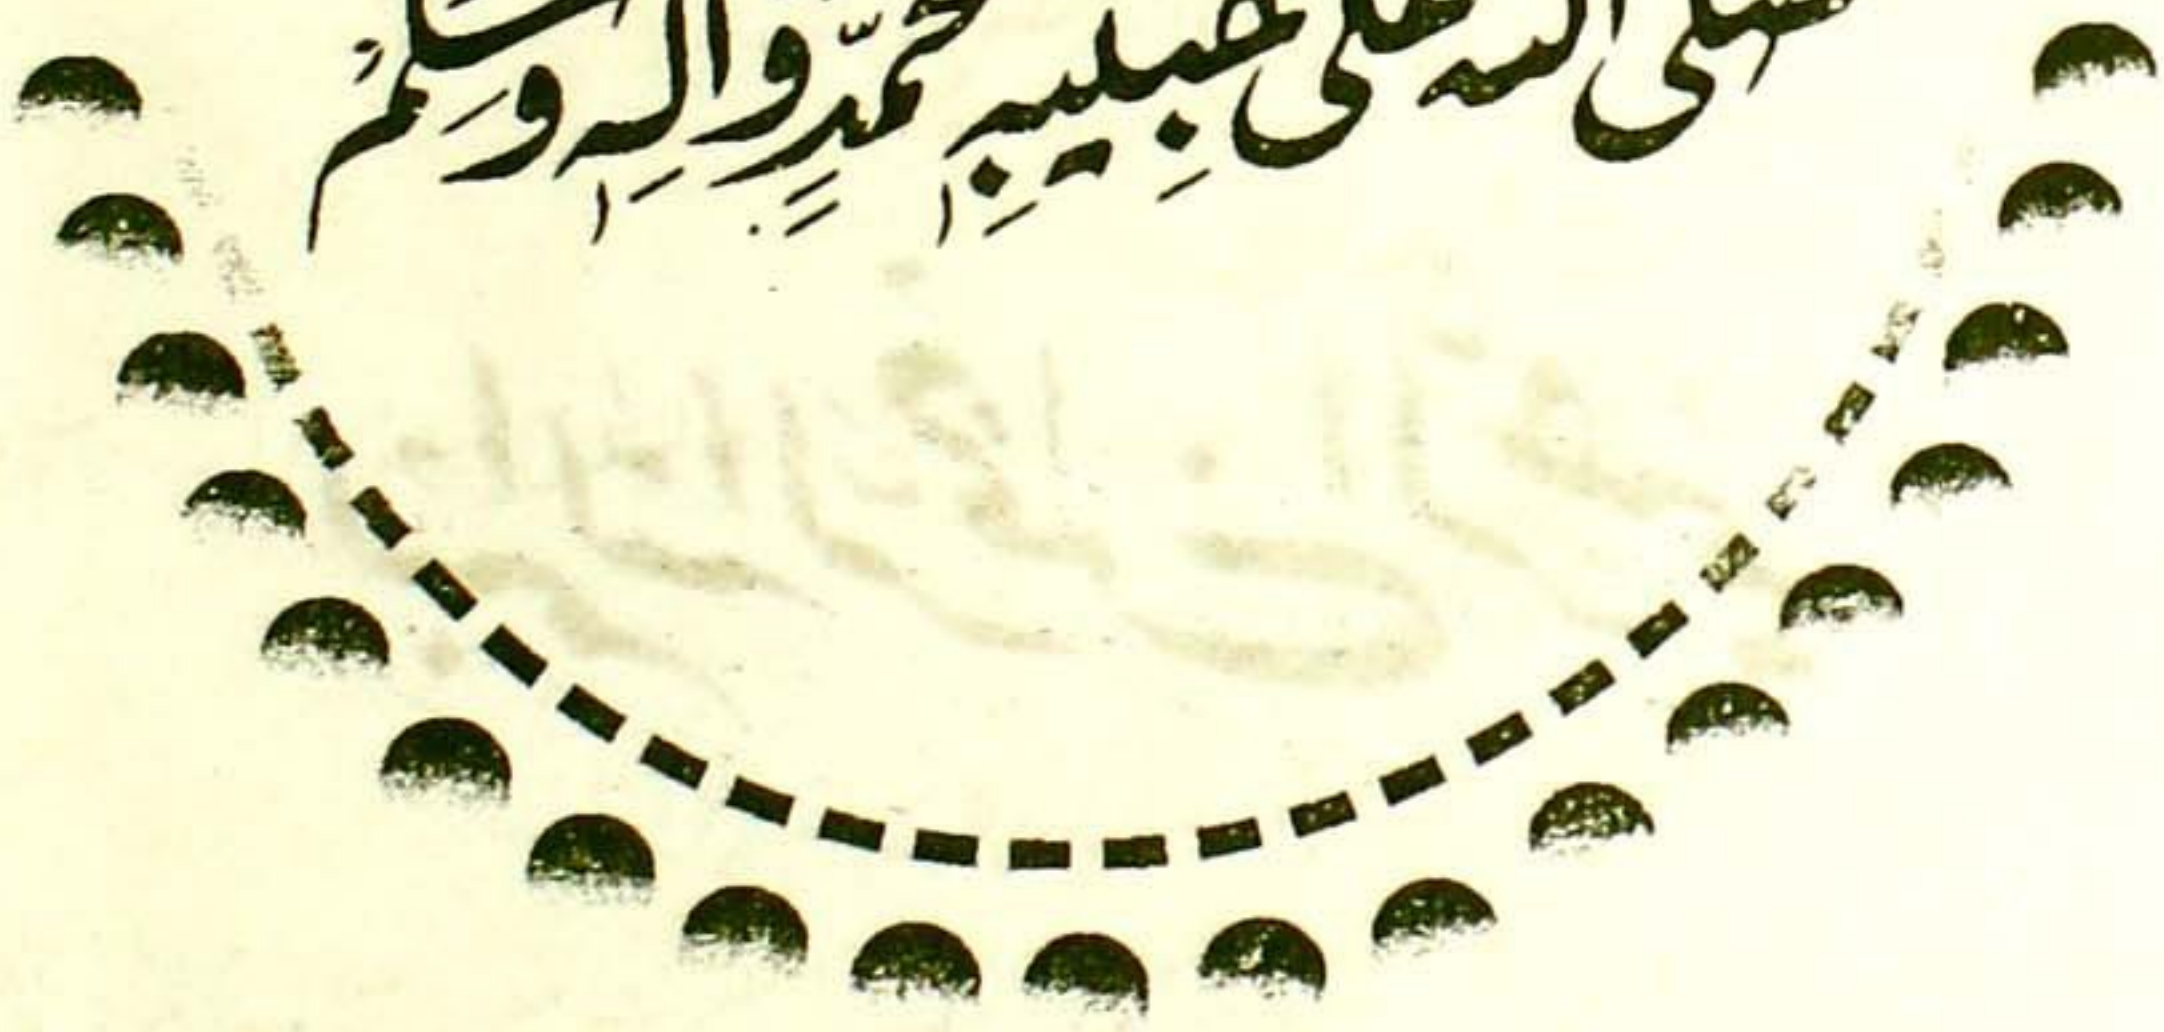 صلی اللہ علی حبیبہٖ محمدٍ وَّاٰلِہٖ وَسَلَّمْ